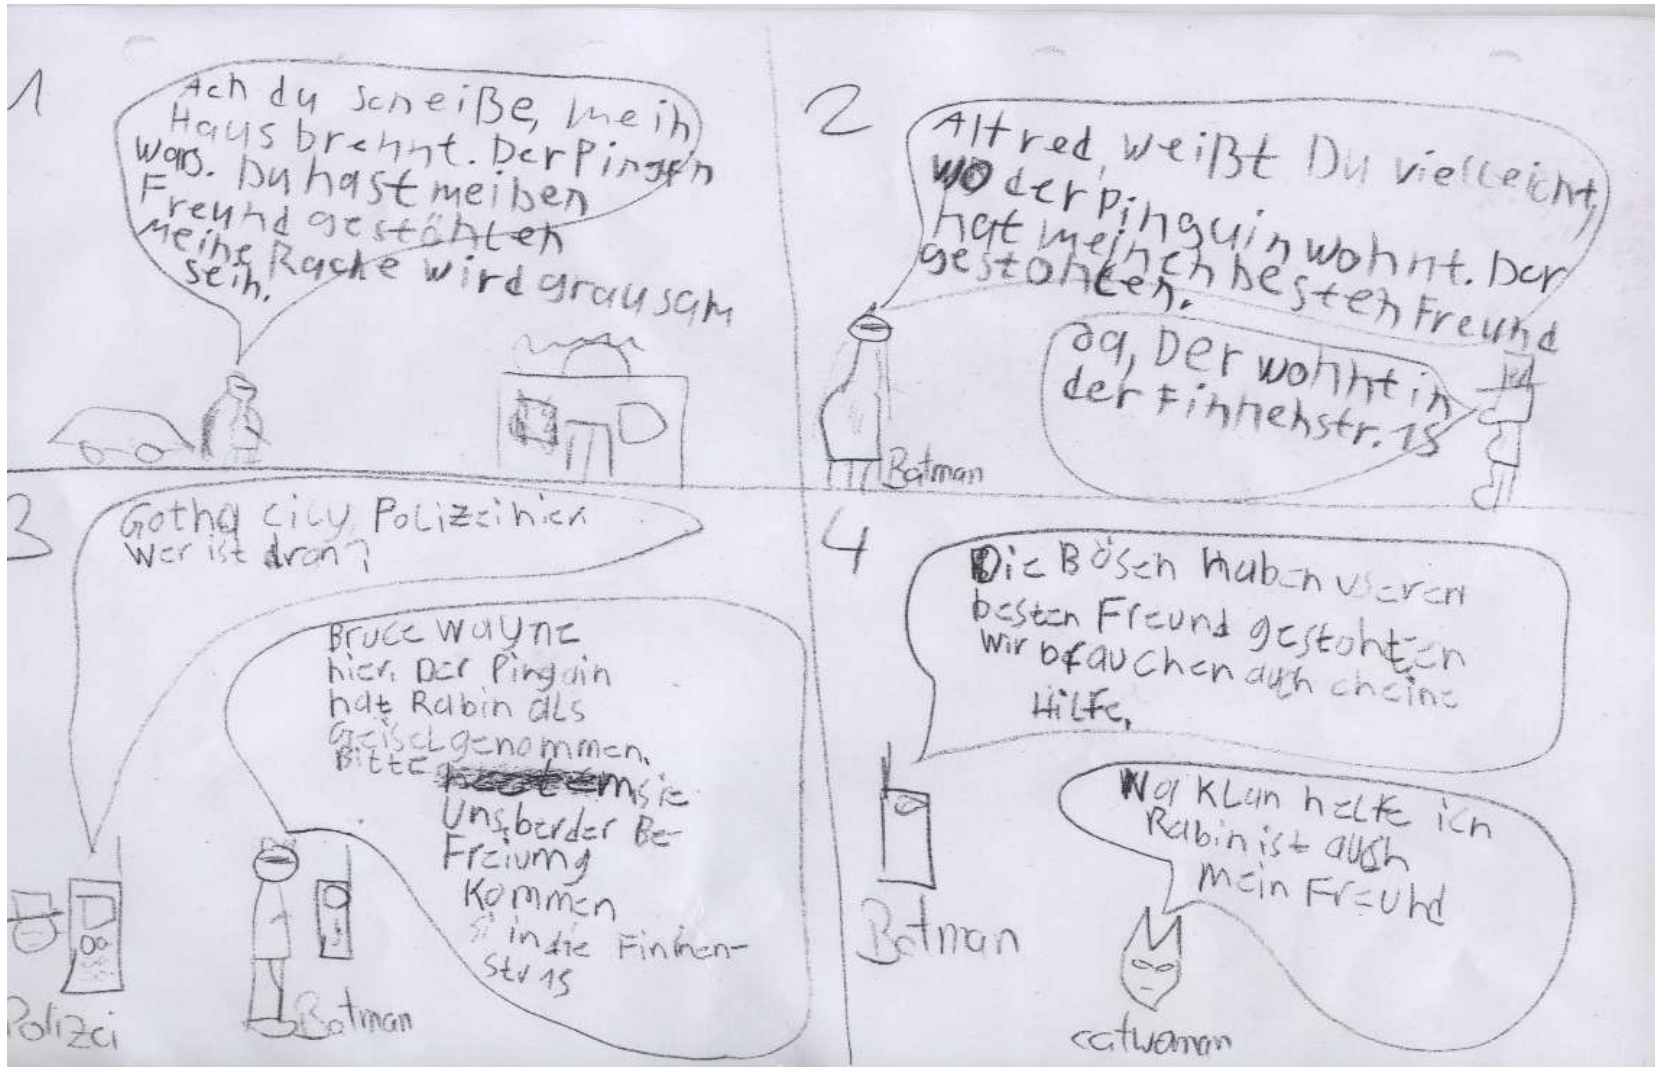 1
Ach du scheiße, mein
Haus brennt. Der Pingin
wars. Du hast meiben
Freund gestohlen
meine Rache wird grausam
sein.
2
Alfred, weißt Du vielleicht,
wo der pinguin wohnt. Der
hat meinen besten Freund
gestohlen.
Ja, Der wohnt in
der Finnenstr. 15
Batman
3
Gotha City Polizei hier.
Wer ist dran?
Bruce Wayne
hier. Der Pinguin
hat Rabin als
Geisel genommen.
Bitte sie
Uns, ber der Be-
Freiung
Kommen
in die Finnen-
Str 15
Polizei
Batman
4
Die Bösen haben useren
besten Freund gestohlen
Wir brauchen auch cheine
Hilfe.
Na Klan helfe ich
Rabin ist auch
mein Freund
Batman
catwoman